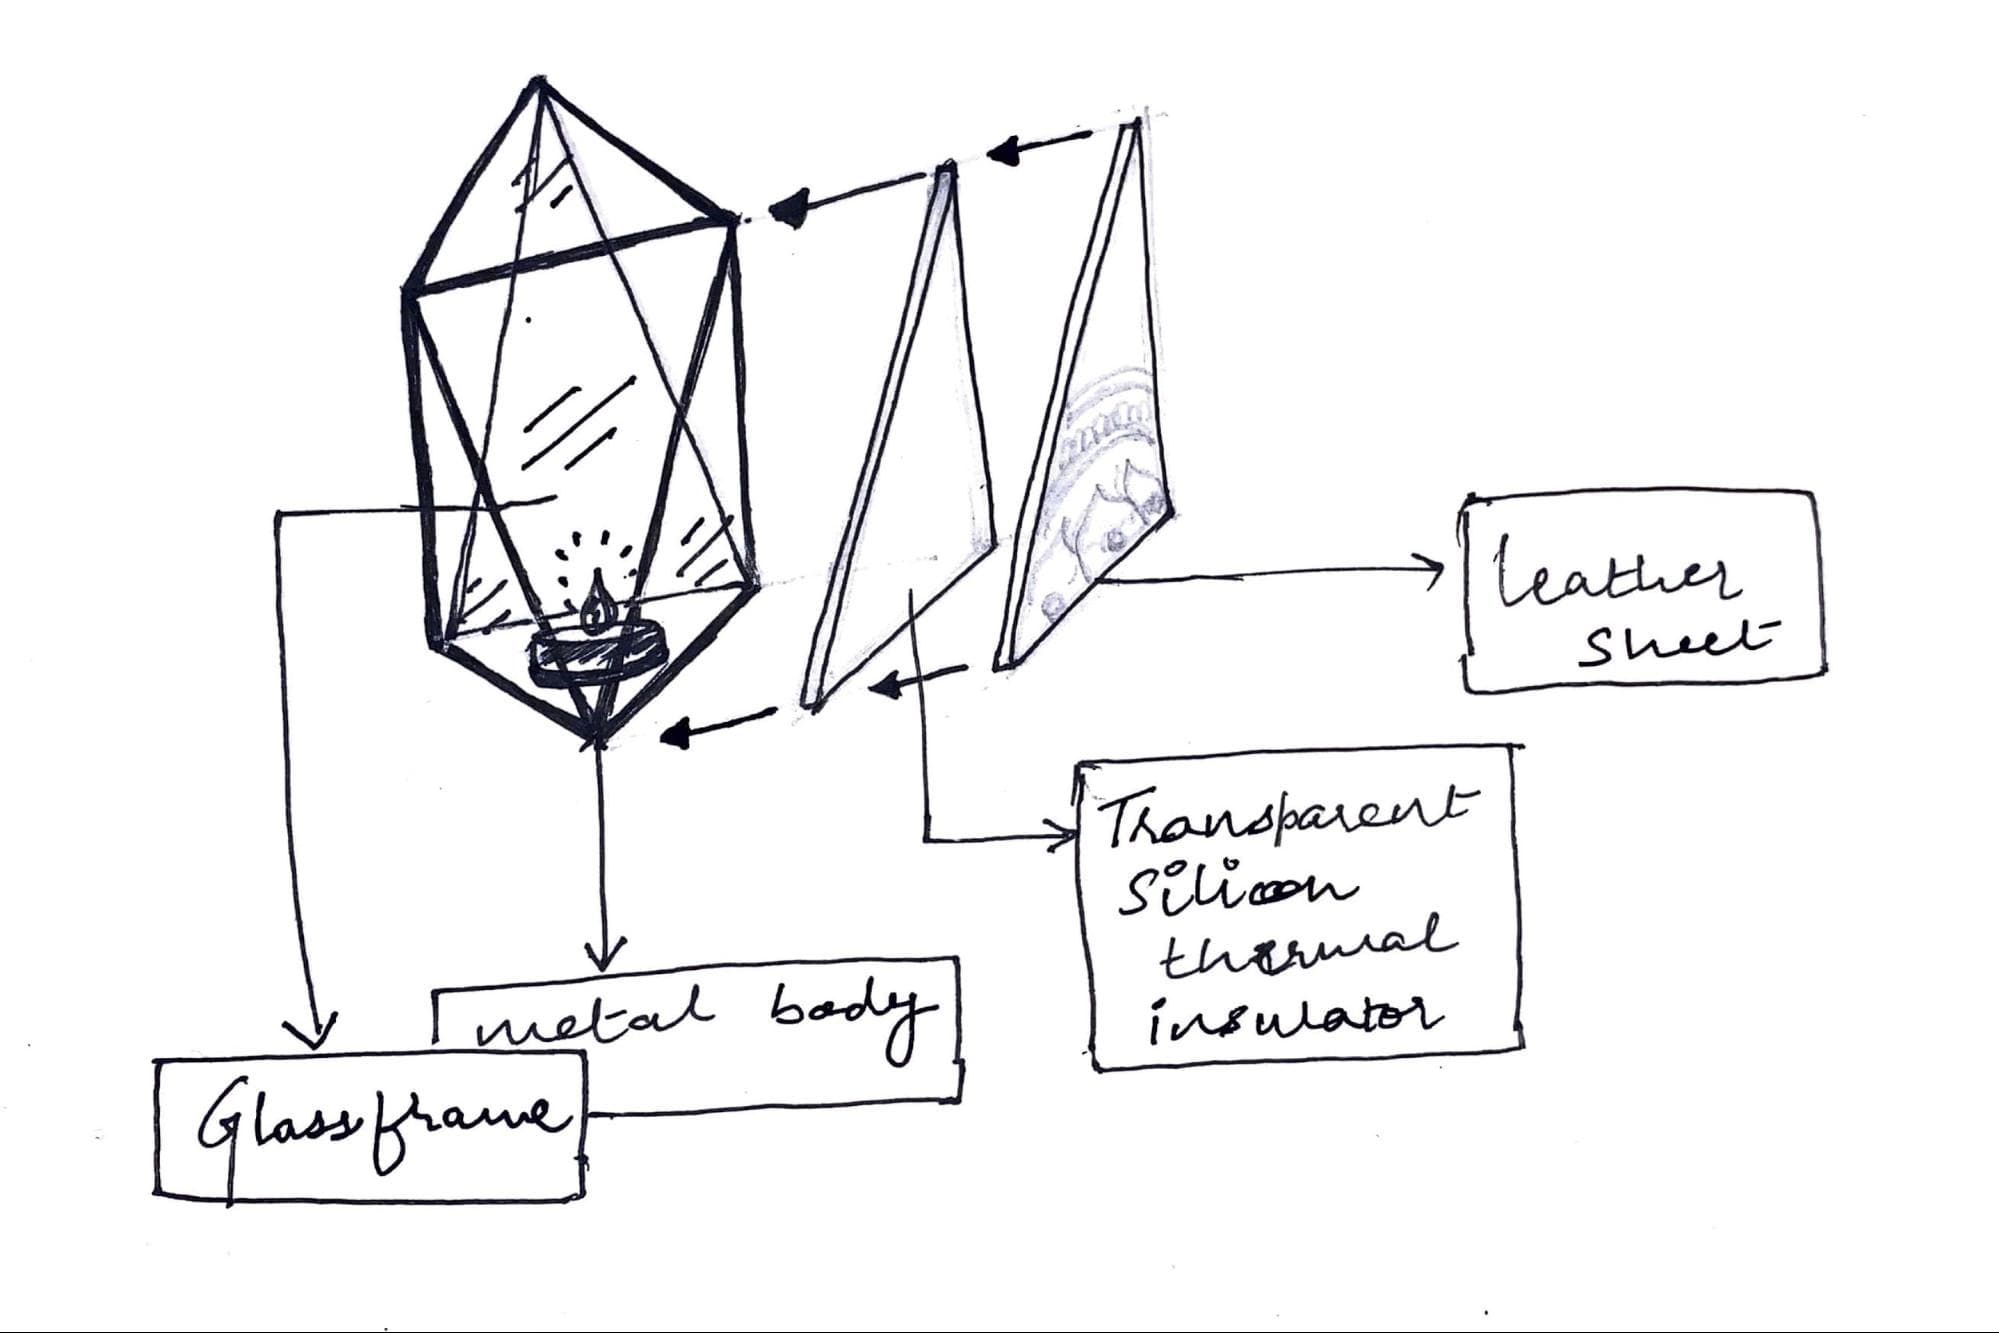 leather
sheet
Transparent
Silicon
thermal
insulator
metal body
Glassframe